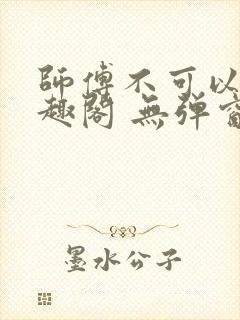 師傅不可以
趣閣 無彈
墨水公子